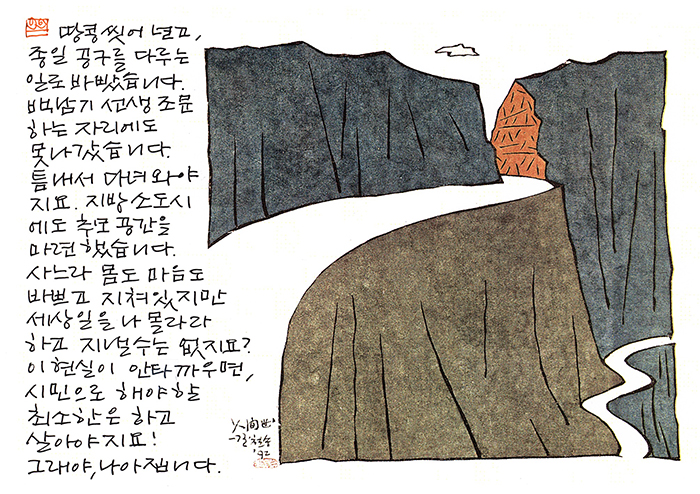 땅콩 씻어 널고,
종일 공구를 다루는
일로 바빴습니다.
백남기 선생 조문
하는 자리에도
못나갔습니다.
틈내서 다녀와야
지요. 지방 소도시
에도 추모 공간을
마련했습니다.
사느라 몸도 마음도
바쁘고 지쳐있지만
세상일을 나 몰라라
하고 지낼수는 없지요?
이 현실이 안타까우면,
시민으로 해야할
최소한은 하고
살아야지요!
그래야, 나아집니다.
人間世
철수
'92